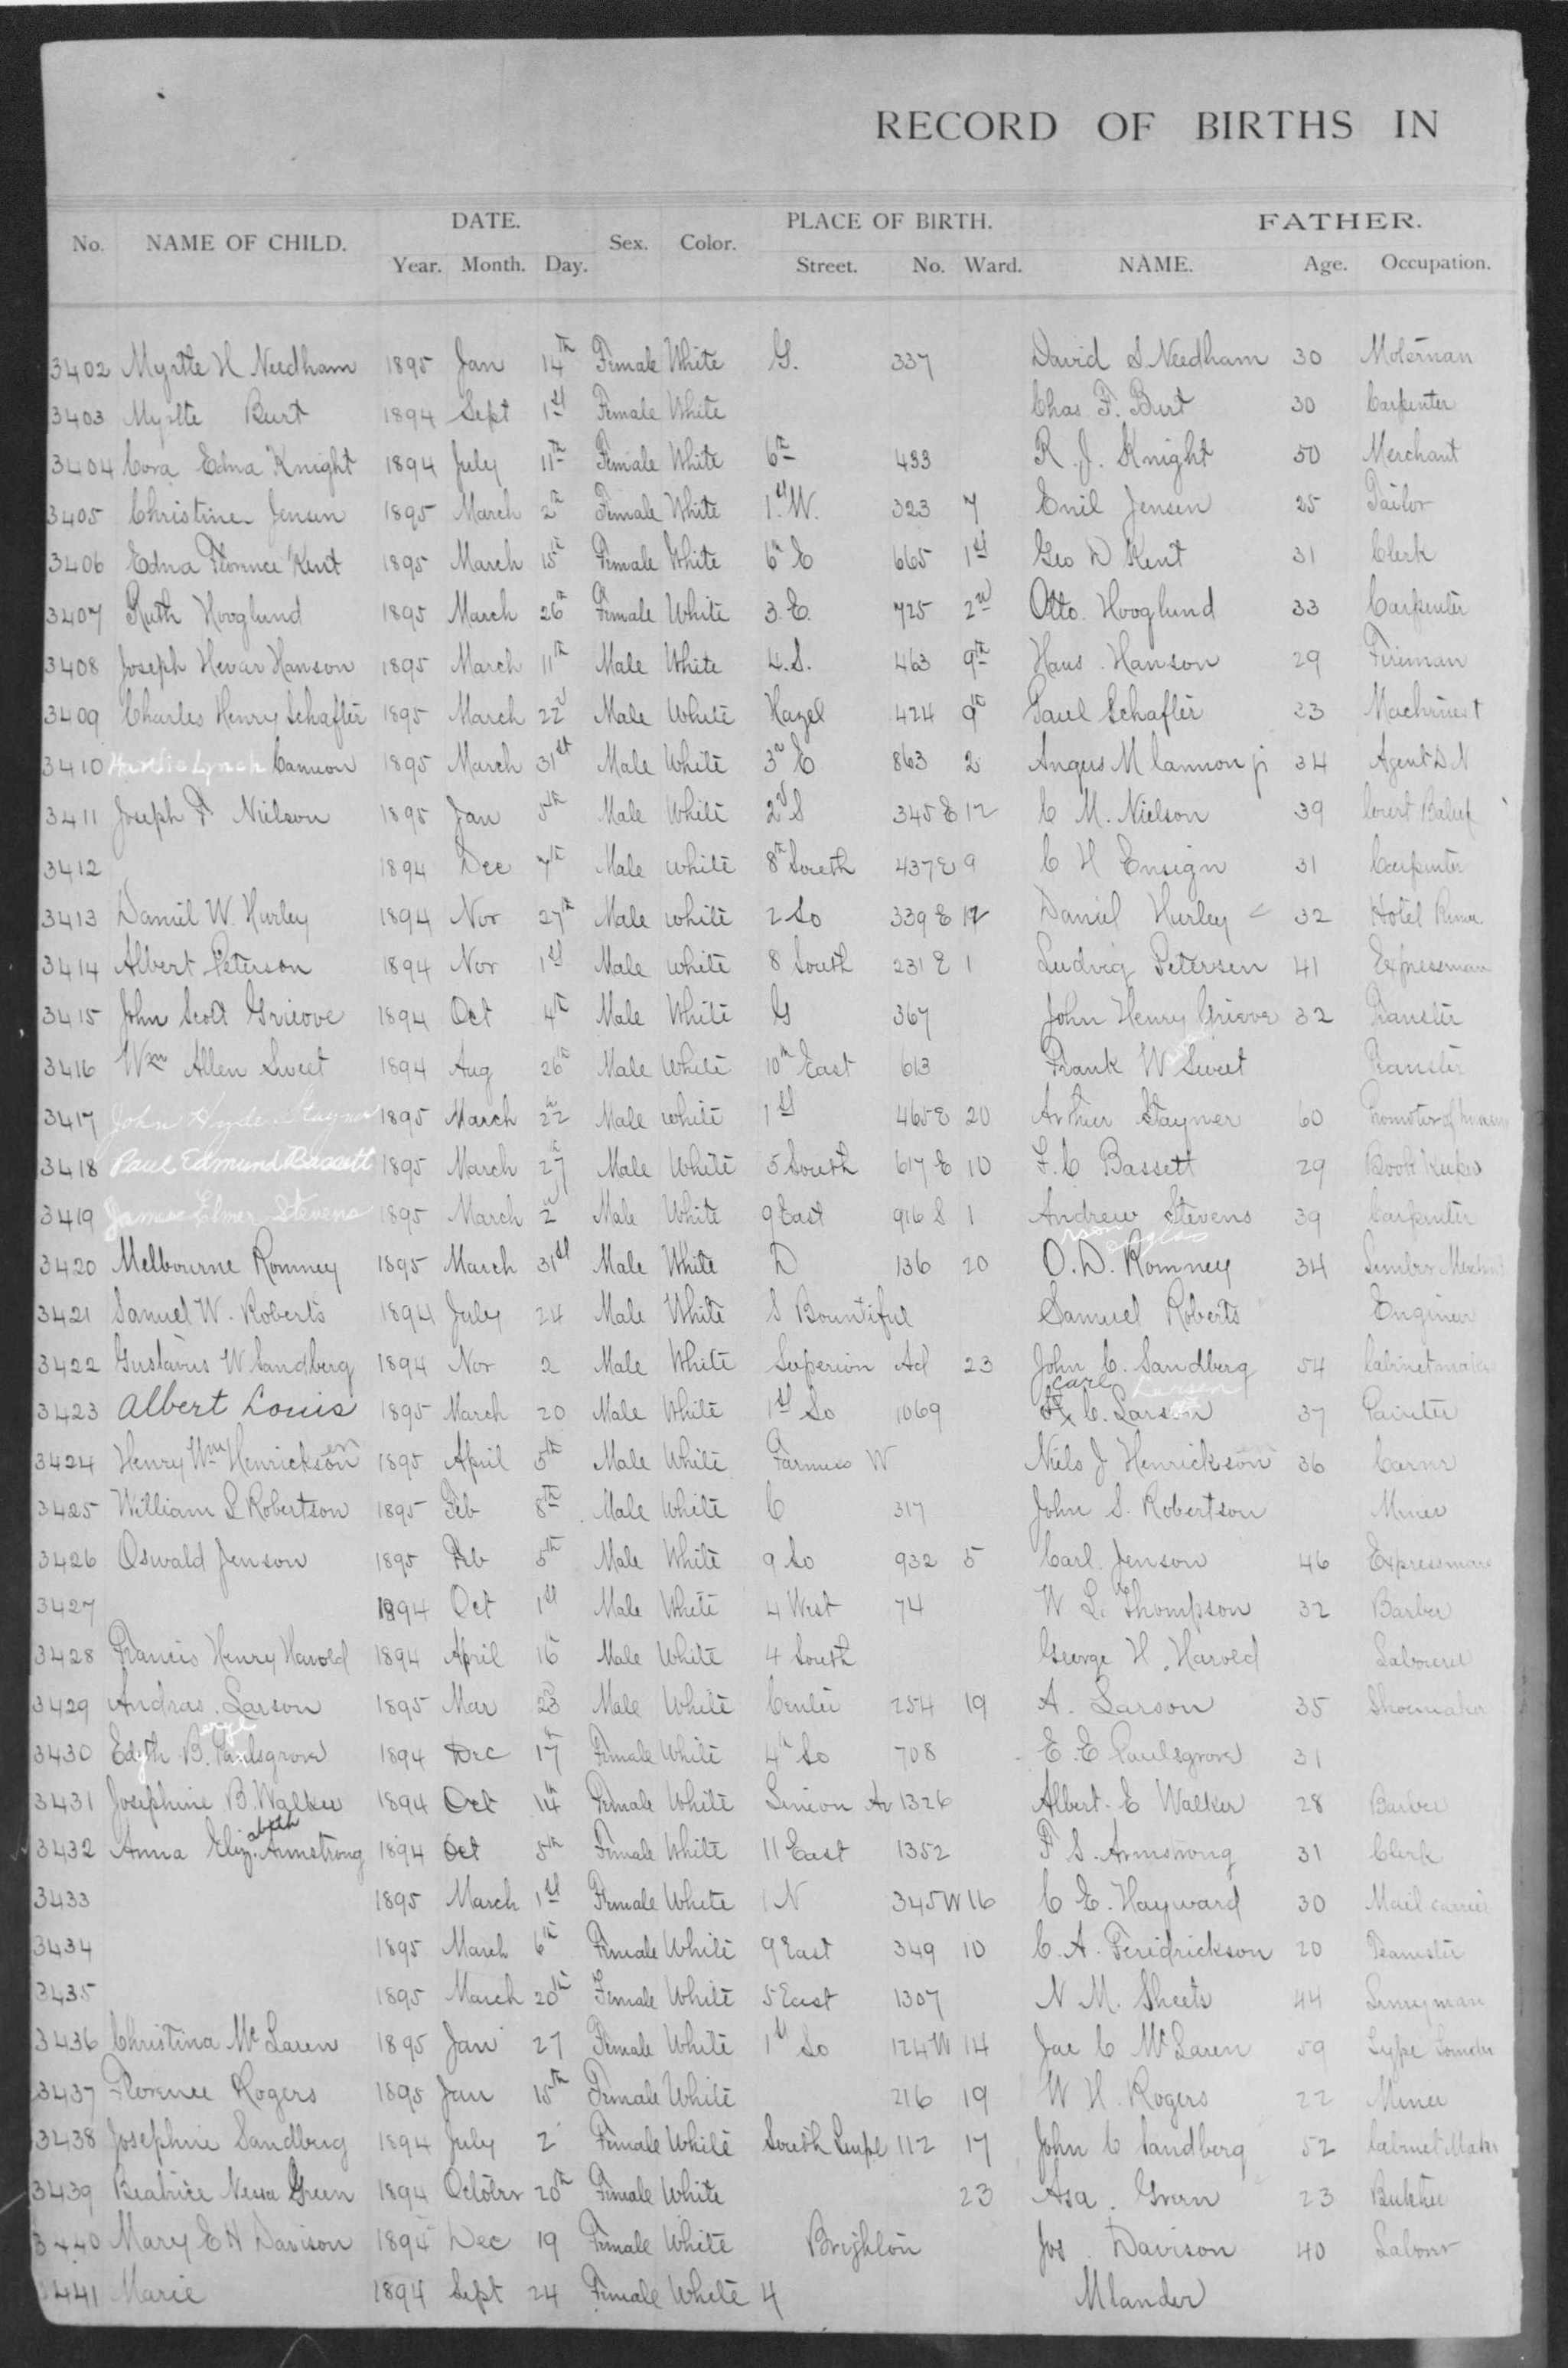 RECORD OF BIRTHS IN
No. NAME OF CHILD. DATE. Sex. Color. PLACE OF BIRTH. FATHER.
Year. Month. Day. Street. No. Ward. NAME. Age. Occupation.
3402 Myrtle H Needham 1895 Jan 14th Female White G. 337 David S. Needham 30 Motorman
3403 Myrtte Burt 1894 Sept 1st Female White Chas F. Burt 30 Carpenter
3404 Cora Edna Knight 1894 July 11th Female White 6th 433 R. J. Knight 50 Merchant
3405 Christine Jensen 1895 March 2nd Female White 1st W. 323 7 Emil Jensen 25 Tailor
3406 Edna Florence Kent 1895 March 15th Female White 6th E 665 1st Geo D Kent 31 Clerk
3407 Ruth Hooglund 1895 March 26th Female White 3. E. 725 2nd Otto. Hooglund 33 Carpenter
3408 Joseph Hevar Hanson 1895 March 11th Male White 4. S. 463 9th Hans Hanson 29 Fireman
3409 Charles Henry Schafter 1895 March 22d Male White Hazel 424 9th Paul Schafter 23 Machinest
3410 Lynch Cannon 1895 March 31st Male White 3rd E 863 2 Angus M Cannon jr 34 Agent D N
3411 Joseph F Nielson 1895 Jan 5th Male White 2d S 345 E 12 C M. Nielson 39 Court
3412 1894 Dec 7th Male White 8th South 437 E 9 C H Ensign 31 Carpenter
3413 Daniel W. Hurley 1894 Nov 27th Male White 2 So 339 E 12 Daniel Hurley 32 Hotel
3414 Albert Peterson 1894 Nov 1st Male White 8 South 231 E 1 Ludvig Petersen 41 Expressman
3415 John Scott Grieove 1894 Oct 4th Male White G 367 John Henry Grieove 32 Teamster
3416 Wm Allen Sweet 1894 Aug 26th Male White 10th East 613 Frank W Sweet Teamster
3417 John Hyde Stayner 1895 March 22 Male White 1st 465 E 20 Arthur Stayner 60 Promoter of
3418 Paul Edmund Bassett 1895 March 27 Male White 5 South 617 E 10 F. C Bassett 29 Book Keeper
3419 James Elmer Stevens 1895 March 2 Male White 9 East 916 S 1 Andrew Stevens 39 Carpenter
3420 Melbourne Romney 1895 March 31st Male White D 136 20 O. D. Romney 34 Lumber Merchant
3421 Samuel W. Roberts 1894 July 24 Male White S Bountiful Samuel Roberts Engineer
3422 Gustavus W Sandberg 1894 Nov 2 Male White Superior Ad 23 John C. Sandberg 54 Cabinetmaker
3423 Albert Louis 1895 March 20 Male White 1st So 1069 Carl C. Larson 37 Painter
3424 Henry Wm Henrickson 1895 April 5th Male White Farmers W Niels J Henrickson 36 Carver
3425 William S Robertson 1895 Feb 8th Male White C 317 John S. Robertson Miner
3426 Oswald Jenson 1895 Feb 5th Male White 9 So 932 5 Carl Jenson 46 Expressman
3427 1894 Oct 1st Male White 4 West 74 W L. Thompson 32 Barber
3428 Francis Henry Harold 1894 April 16 Male White 4 South George H. Harold Laborer
3429 Andras Larson 1895 Mar 23 Male White Center 254 19 A. Larson 35 Shoemaker
3430 Edyth B. Paulsgrove 1894 Dec 17 Female White 4th So 708 E. E Paulsgrove 31
3431 Josephine B. Walker 1894 Oct 14 Female White Simeon Av 1326 Albert E Walker 28 Barber
3432 Anna Elizabeth Armstrong 1894 Oct 5th Female White 11 East 1352 F S. Armstrong 31 Clerk
3433 1895 March 1st Female White 1 N 345 W 16 C E. Hayward 30 Mail carrier
3434 1895 March 6th Female White 9 East 349 10 C. A. Feridrickson 20 Teamster
3435 1895 March 20th Female White 5 East 1307 N M. Sheets 44
3436 Christina McLaren 1895 Jan 27 Female White 1st So 124 W 14 Jae C McLaren 59 Type
3437 Florence Rogers 1895 Jan 15th Female White 216 19 W H. Rogers 22 Miner
3438 Josephine Sandberg 1894 July 2 Female White South Templ 112 17 John C Sandberg 52 Cabinet Maker
3439 Beatrice Nessa Green 1894 October 20th Female White 23 Asa. Green 23 Butcher
3440 Mary E H Davison 1894 Dec 19 Female White Brighton Jos Davison 40 Labour
3441 Marie 1894 Sept 24 Female White 4 Mlander